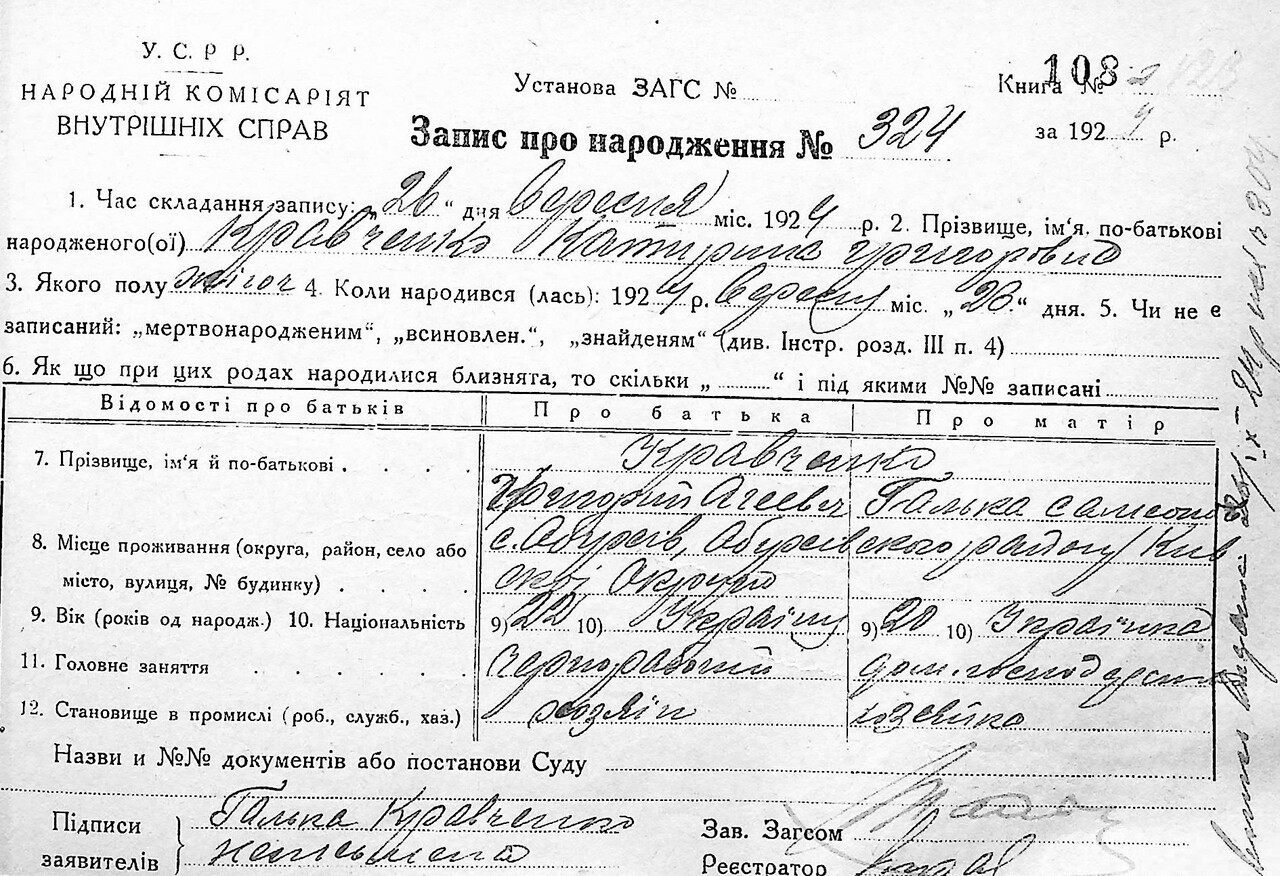 У. С. Р Р.
НАРОДНІЙ КОМІСАРІЯТ
ВНУТРІШНІХ СПРАВ
Установа ЗАГС №
Книга № 108
за 1924 р.
Запис про народження № 324
1. Час складання запису: „26“ дня вересня міс. 1924 р. 2. Прізвище, ім'я, по-батькові
народженого(ої) Кравченко Катирина Григоровна
3. Якого полу жіноч 4. Коли народився (лась): 1924 р. вересня міс. „26“ дня. 5. Чи не є
записаний: „мертвонародженим“, „всиновлен.“, „знайденям“ (див. Інстр. розд. III п. 4)
6. Як що при цих родах народилися близнята, то скільки „ “ і під якими №№ записані
Відомості про батьків Про батька Про матір
7. Прізвище, ім'я й по-батькові Кравченко
Григорій Агеевич Галька Самсон
8. Місце проживання (округа, район, село або с. Обухів, Обухівского району Киів
місто, вулиця, № будинку) ской Округи
9. Вік (років од народж.) 10. Національність 9) 22 10) Україну 9) 20 10) Українка
11. Головне заняття чернорабочий дом. господарство
12. Становище в промислі (роб., служб., хаз.) хозяін хозейка
Назви и №№ документів або постанови Суду
Підписи
заявителів
Галька Кравченко
неписьмена
Зав. Загсом
Реєстратор